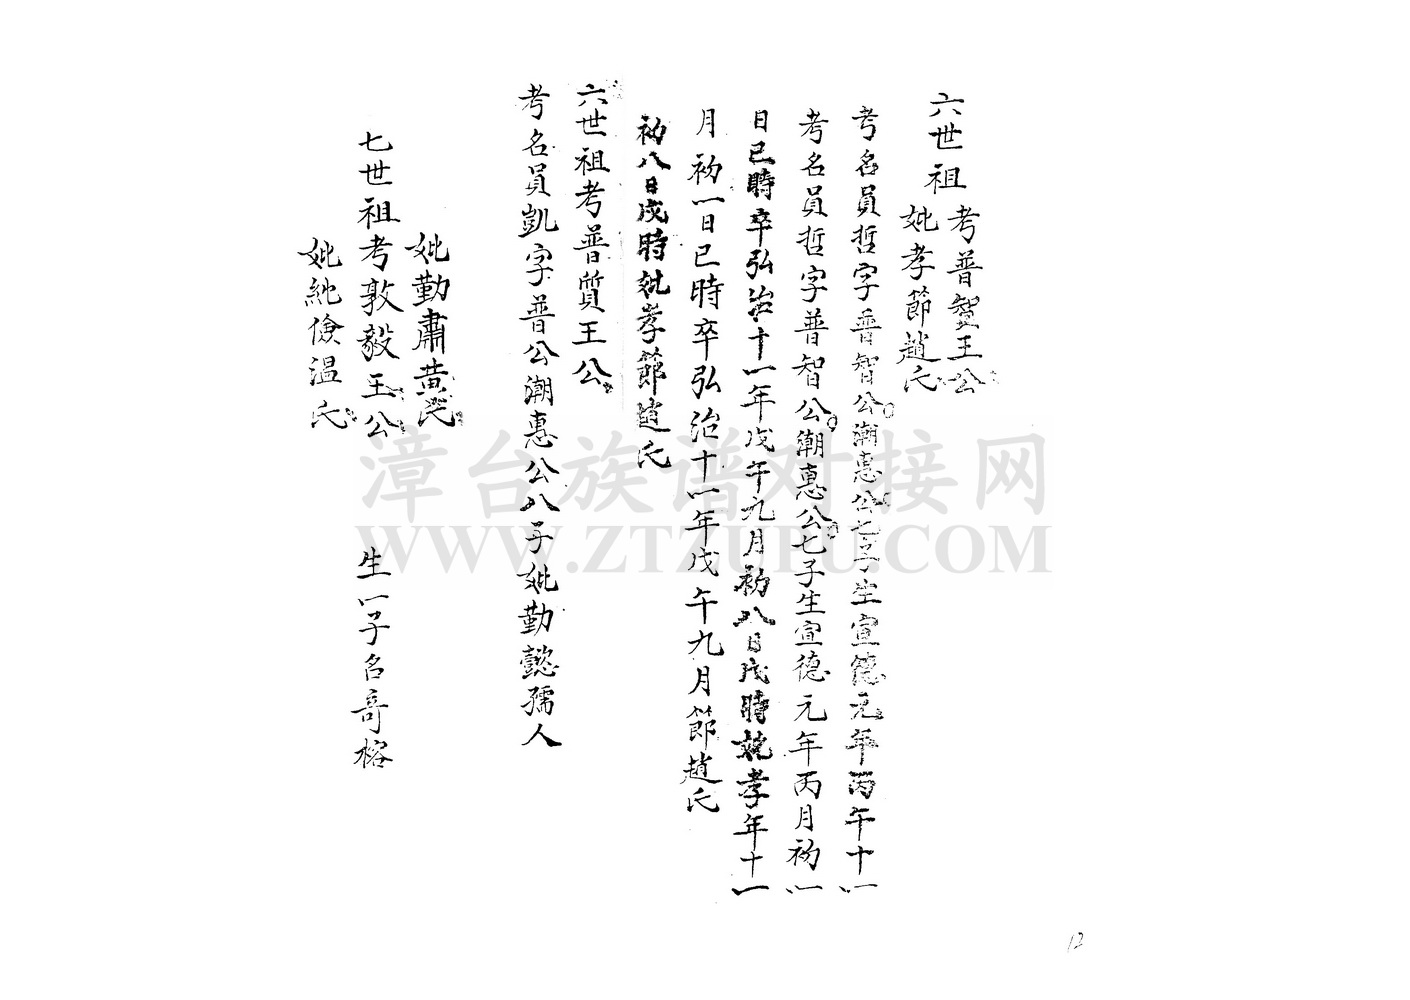 六世祖
考普智王公
妣孝節趙氏
考名員哲字普智公潮惠公七子生宣德元年丙午十一
考名員哲字普智公潮惠公七子生宣德元年丙月初一
日巳時卒弘治十一年戊午九月初八日戌時妣孝年十一
月初一日巳時卒弘治十一年戊午九月節趙氏
初八日戌時妣孝節趙氏
六世祖考普質王公
考名員凱字普公潮惠公八子妣勤懿孺人
妣勤肅黃氏
七世祖考敦毅王公 生一子名哥榕
妣純儉温氏
漳台族谱对接网
WWW.ZTZUPU.COM
12